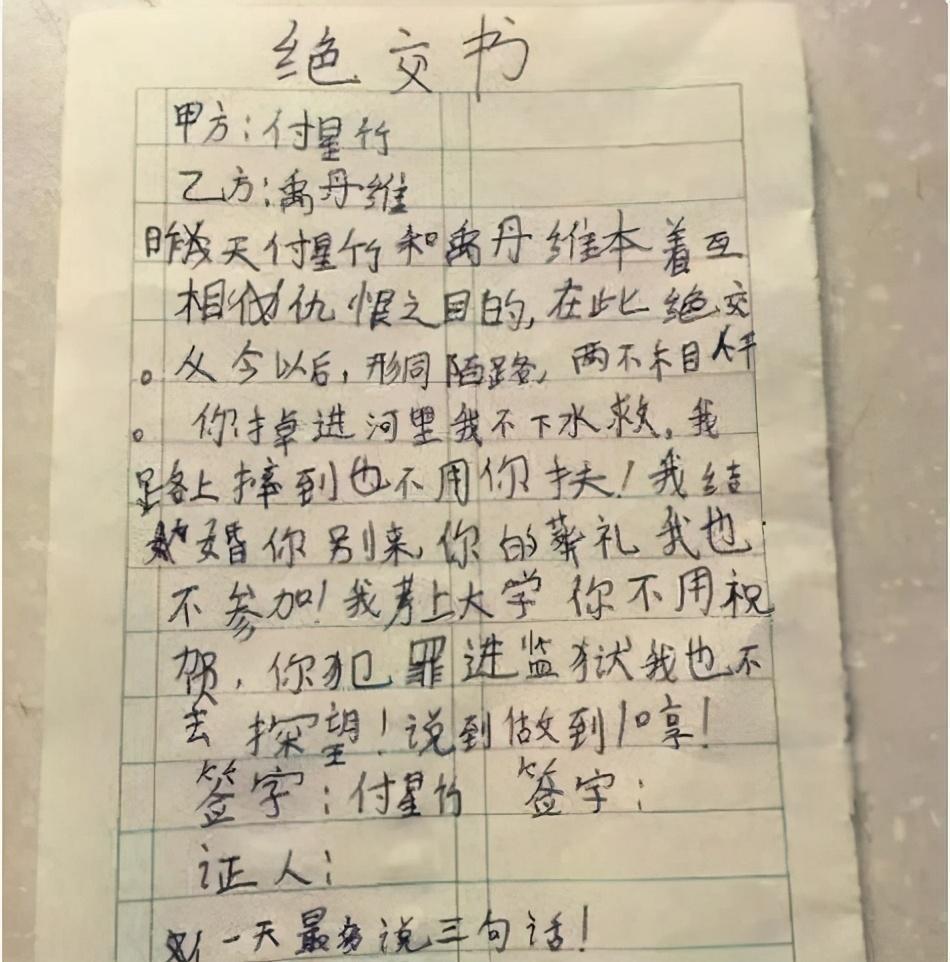 绝交书
甲方：付星竹
乙方：禹丹维
昨天付星竹和禹丹维本着互
相仇恨之目的，在此绝交
。从今以后，形同陌路，两不相干
。你掉进河里我不下水救，我
路上摔到也不用你扶！我结
婚你别来，你的葬礼我也
不参加！我考上大学你不用祝
贺，你犯罪进监狱我也不
去探望！说到做到！哼！
签字：付星竹 签字：
证人：
一天最多说三句话！